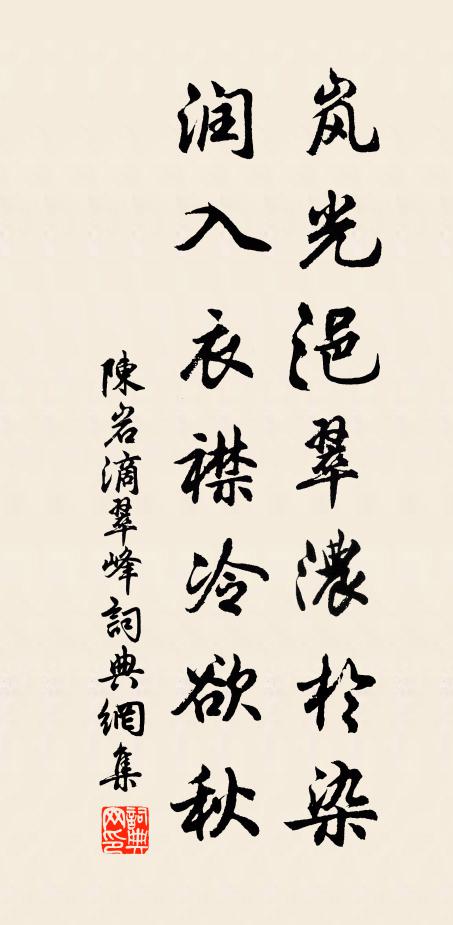 岚光浥翠濃於染
润入衣襟冷欲秋
陳岩滴翠峰詞典網集
詞典网印